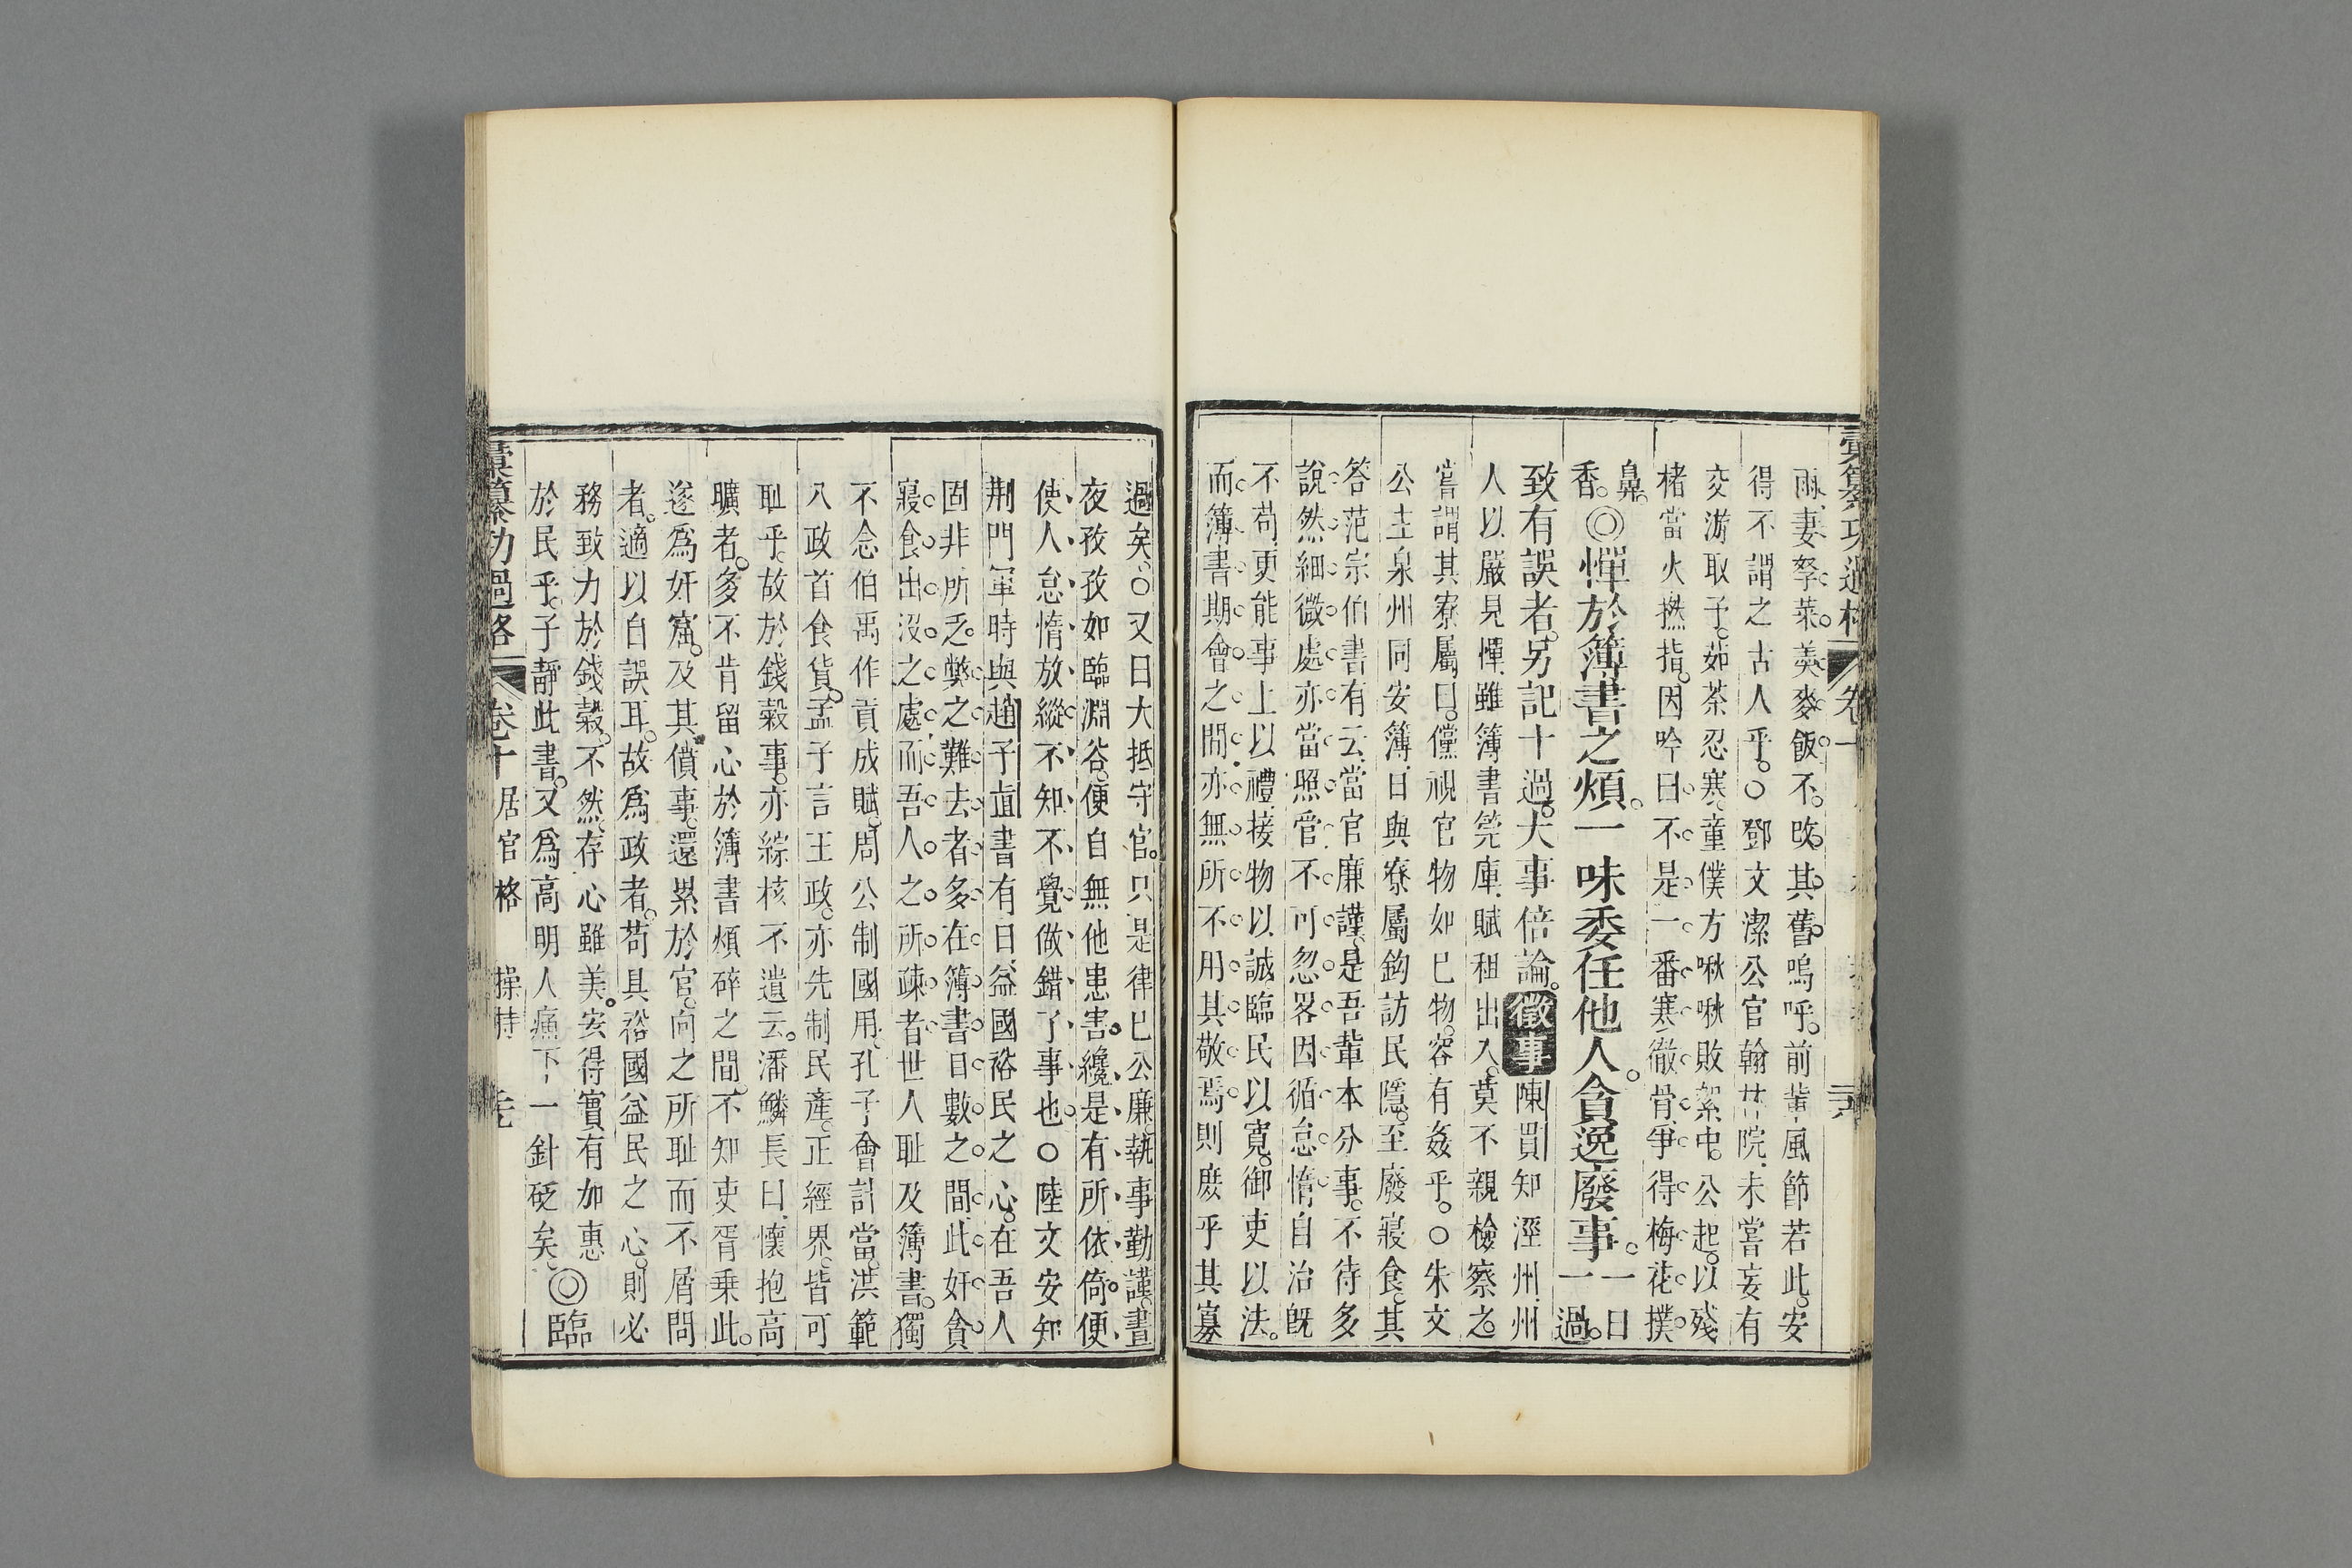 彙纂功過格 卷十
雨妻孥菜羮麥飯不改其舊嗚呼前輩風節若此安
得不謂之古人乎○鄧文潔公官翰林院未嘗妄有
交游取予茹荼忍寒童僕方啾啾敗絮中公起以殘
楮當火撚指因吟曰不是一番寒徹骨爭得梅花撲
鼻
香◎憚於簿書之煩一味委任他人貪逸廢事一日
一過
致有誤者另記十過大事倍論徵事陳貫知涇州州
人以嚴見憚雖簿書筦庫賦租出入莫不親檢察之
嘗謂其寮屬曰儻視官物如己物容有姦乎○朱文
公主泉州同安簿日與寮屬鈎訪民隱至廢寢食其
答范宗伯書有云當官廉謹是吾輩本分事不待多
說然細微處亦當照管不可忽畧因循怠惰自治旣
不苟更能事上以禮接物以誠臨民以寬御吏以法
而簿書期會之間亦無所不用其敬焉則庶乎其寡
過矣○又曰大抵守官只是律己公廉執事勤謹晝
夜孜孜如臨淵谷便自無他患害纔是有所依倚便
使人怠惰放縱不知不覺做錯了事也○陸文安知
荆門軍時與趙子直書有曰益國裕民之心在吾人
固非所乏獘之難去者多在簿書日數之間此奸貪
寢食出沒之處而吾人之所疎者世人耻及簿書獨
不念伯禹作貢成賦周公制國用孔子會計當洪範
八政首食貨孟子言王政亦先制民產正經界皆可
耻乎故於錢穀事亦綜核不遺云潘鱗長曰懷抱高
曠者多不肯留心於簿書煩碎之間不知吏胥乗此
遂爲奸窩及其僨事還累於官向之所耻而不屑問
者適以自誤耳故爲政者苟具裕國益民之心則必
務致力於錢穀不然存心雖美安得實有加惠
於民乎子靜此書又爲高明人痛下一針砭矣◎臨
彙纂功過格 卷十 居官格 操持